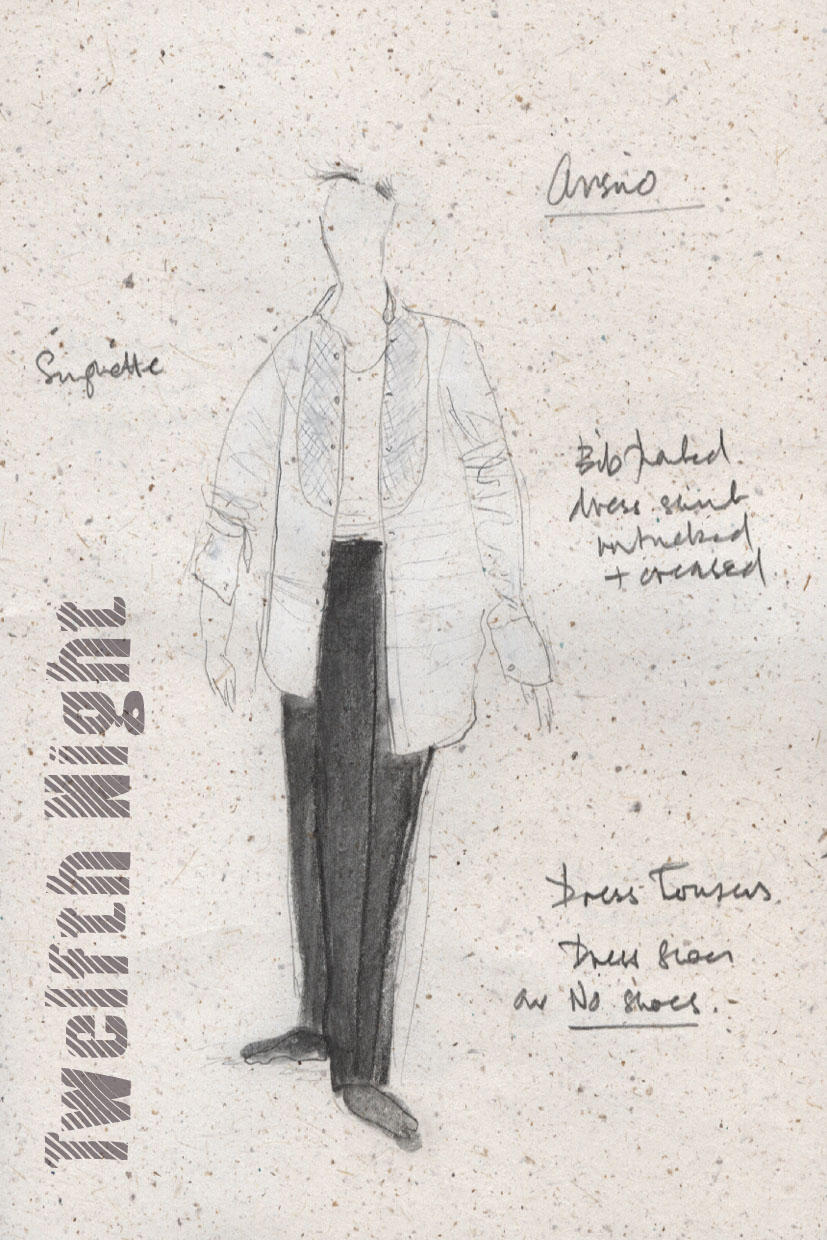 Orsino
Bib
dress shirt
untucked
+ creased
Dress Trousers
Dress shoes
or No shoes.-
Twelfth Night